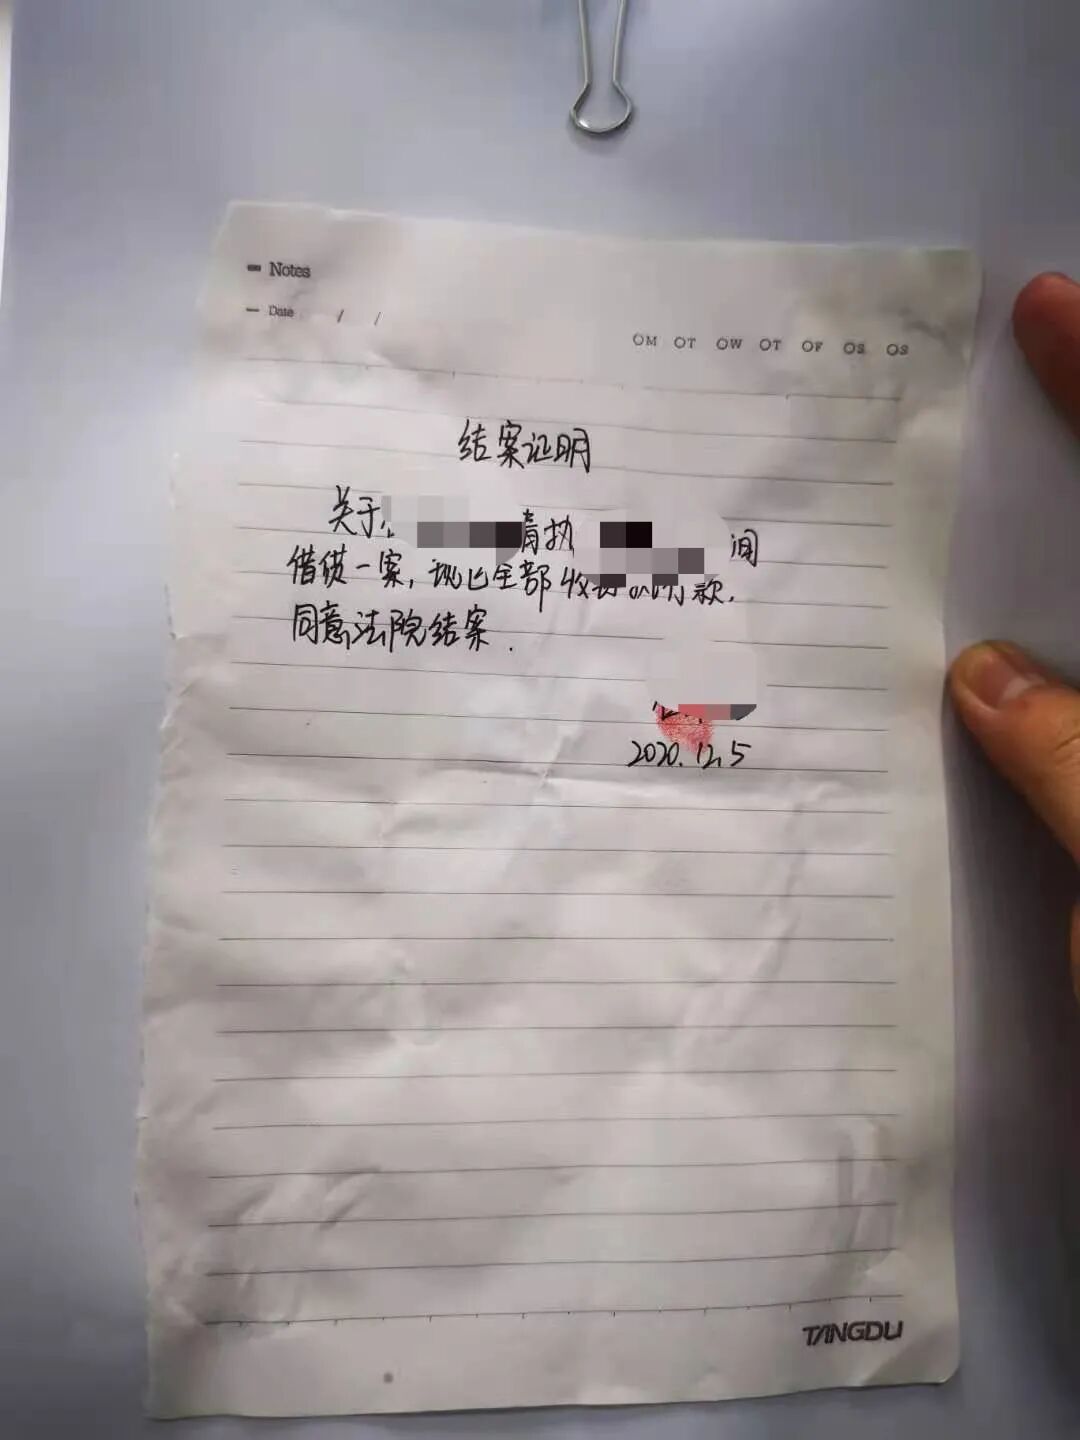 Notes
Date / /
OM OT OW OT OF OS OS
结案证明
关于 请执 间
借贷一案，现已全部收 款.
同意法院结案.
2020.12.5
TANGDU